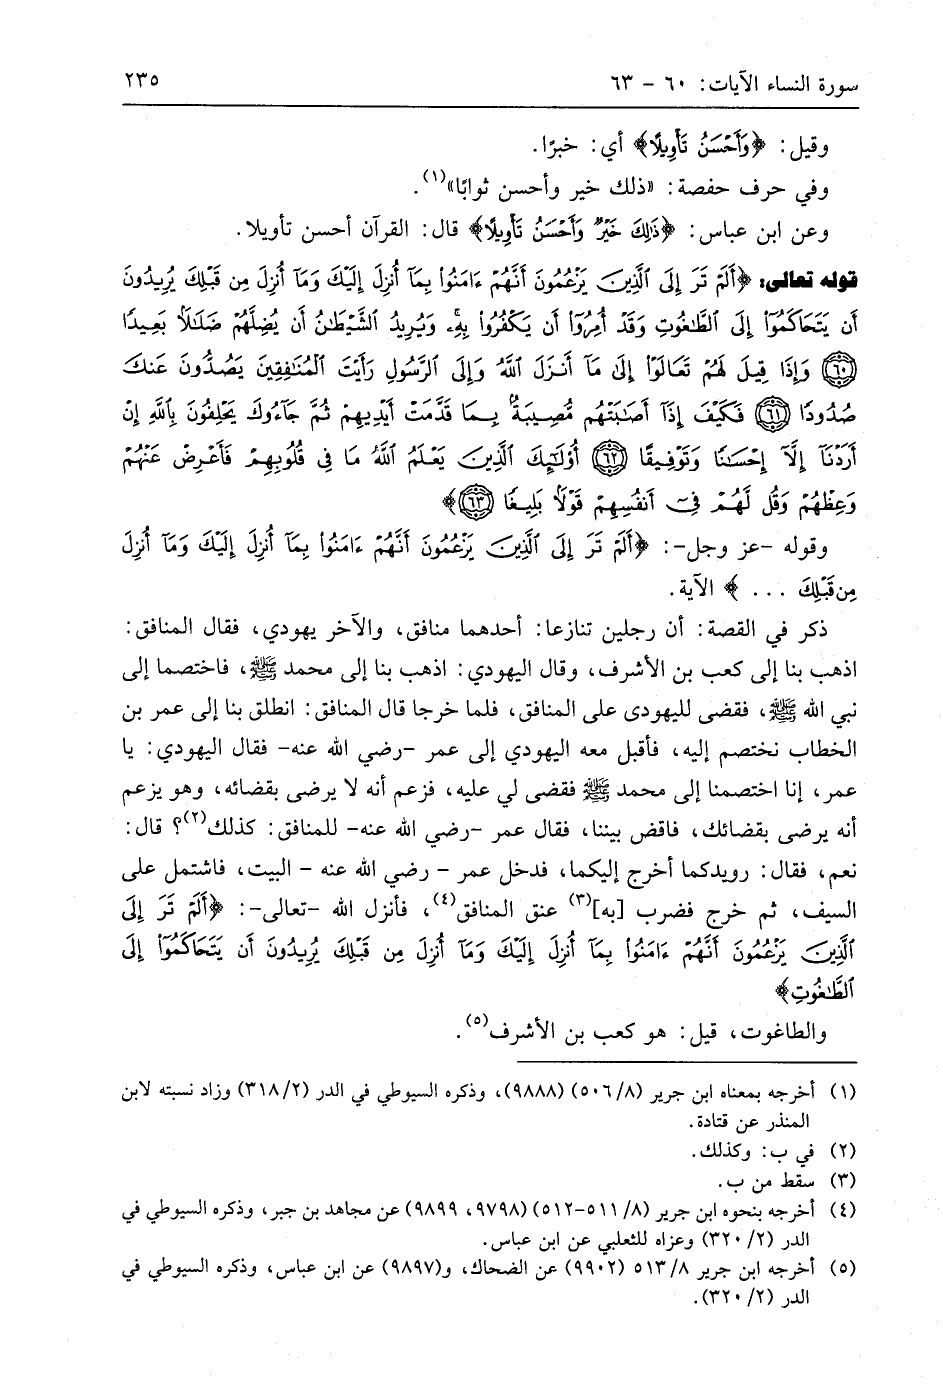 سورة النساء الآيات: ٦٠ - ٦٣ ٢٣٥
وقيل: ﴿وَأَحْسَنُ تَأْوِيلًا﴾ أي: خبرًا.
وفي حرف حفصة: «ذلك خير وأحسن ثوابًا»(١).
وعن ابن عباس: ﴿ذَٰلِكَ خَيْرٌ وَأَحْسَنُ تَأْوِيلًا﴾ قال: القرآن أحسن تأويلا.
قوله تعالى: ﴿أَلَمْ تَرَ إِلَى ٱلَّذِينَ يَزْعُمُونَ أَنَّهُمْ ءَامَنُوا۟ بِمَآ أُنزِلَ إِلَيْكَ وَمَآ أُنزِلَ مِن قَبْلِكَ يُرِيدُونَ
أَن يَتَحَاكَمُوٓا۟ إِلَى ٱلطَّٰغُوتِ وَقَدْ أُمِرُوٓا۟ أَن يَكْفُرُوا۟ بِهِۦ وَيُرِيدُ ٱلشَّيْطَٰنُ أَن يُضِلَّهُمْ ضَلَٰلًۢا بَعِيدًا
﴿٦٠﴾ وَإِذَا قِيلَ لَهُمْ تَعَالَوْا۟ إِلَىٰ مَآ أَنزَلَ ٱللَّهُ وَإِلَى ٱلرَّسُولِ رَأَيْتَ ٱلْمُنَٰفِقِينَ يَصُدُّونَ عَنكَ
صُدُودًا ﴿٦١﴾ فَكَيْفَ إِذَآ أَصَٰبَتْهُم مُّصِيبَةٌۢ بِمَا قَدَّمَتْ أَيْدِيهِمْ ثُمَّ جَآءُوكَ يَحْلِفُونَ بِٱللَّهِ إِنْ
أَرَدْنَآ إِلَّآ إِحْسَٰنًا وَتَوْفِيقًا ﴿٦٢﴾ أُو۟لَٰٓئِكَ ٱلَّذِينَ يَعْلَمُ ٱللَّهُ مَا فِى قُلُوبِهِمْ فَأَعْرِضْ عَنْهُمْ
وَعِظْهُمْ وَقُل لَّهُمْ فِىٓ أَنفُسِهِمْ قَوْلًۢا بَلِيغًا ﴿٦٣﴾﴾
وقوله -عز وجل-: ﴿أَلَمْ تَرَ إِلَى ٱلَّذِينَ يَزْعُمُونَ أَنَّهُمْ ءَامَنُوا۟ بِمَآ أُنزِلَ إِلَيْكَ وَمَآ أُنزِلَ
مِن قَبْلِكَ ... ﴾ الآية.
ذكر في القصة: أن رجلين تنازعا: أحدهما منافق، والآخر يهودي، فقال المنافق:
اذهب بنا إلى كعب بن الأشرف، وقال اليهودي: اذهب بنا إلى محمد ﷺ، فاختصما إلى
نبي الله ﷺ، فقضى لليهودى على المنافق، فلما خرجا قال المنافق: انطلق بنا إلى عمر بن
الخطاب نختصم إليه، فأقبل معه اليهودي إلى عمر -رضي الله عنه- فقال اليهودي: يا
عمر، إنا اختصمنا إلى محمد ﷺ فقضى لي عليه، فزعم أنه لا يرضى بقضائه، وهو يزعم
أنه يرضى بقضائك، فاقض بيننا، فقال عمر -رضي الله عنه- للمنافق: كذلك(٢)؟ قال:
نعم، فقال: رويدكما أخرج إليكما، فدخل عمر - رضي الله عنه - البيت، فاشتمل على
السيف، ثم خرج فضرب [به](٣) عنق المنافق(٤)، فأنزل الله -تعالى-: ﴿أَلَمْ تَرَ إِلَى
ٱلَّذِينَ يَزْعُمُونَ أَنَّهُمْ ءَامَنُوا۟ بِمَآ أُنزِلَ إِلَيْكَ وَمَآ أُنزِلَ مِن قَبْلِكَ يُرِيدُونَ أَن يَتَحَاكَمُوٓا۟ إِلَى
ٱلطَّٰغُوتِ﴾
والطاغوت، قيل: هو كعب بن الأشرف(٥).
(١) أخرجه بمعناه ابن جرير (٨/ ٥٠٦) (٩٨٨٨)، وذكره السيوطي في الدر (٢/ ٣١٨) وزاد نسبته لابن
المنذر عن قتادة.
(٢) في ب: وكذلك.
(٣) سقط من ب.
(٤) أخرجه بنحوه ابن جرير (٨/ ٥١١-٥١٢) (٩٧٩٨، ٩٨٩٩) عن مجاهد بن جبر، وذكره السيوطي في
الدر (٢/ ٣٢٠) وعزاه للثعلبي عن ابن عباس.
(٥) أخرجه ابن جرير ٨/ ٥١٣ (٩٩٠٢) عن الضحاك، و(٩٨٩٧) عن ابن عباس، وذكره السيوطي في
الدر (٢/ ٣٢٠).